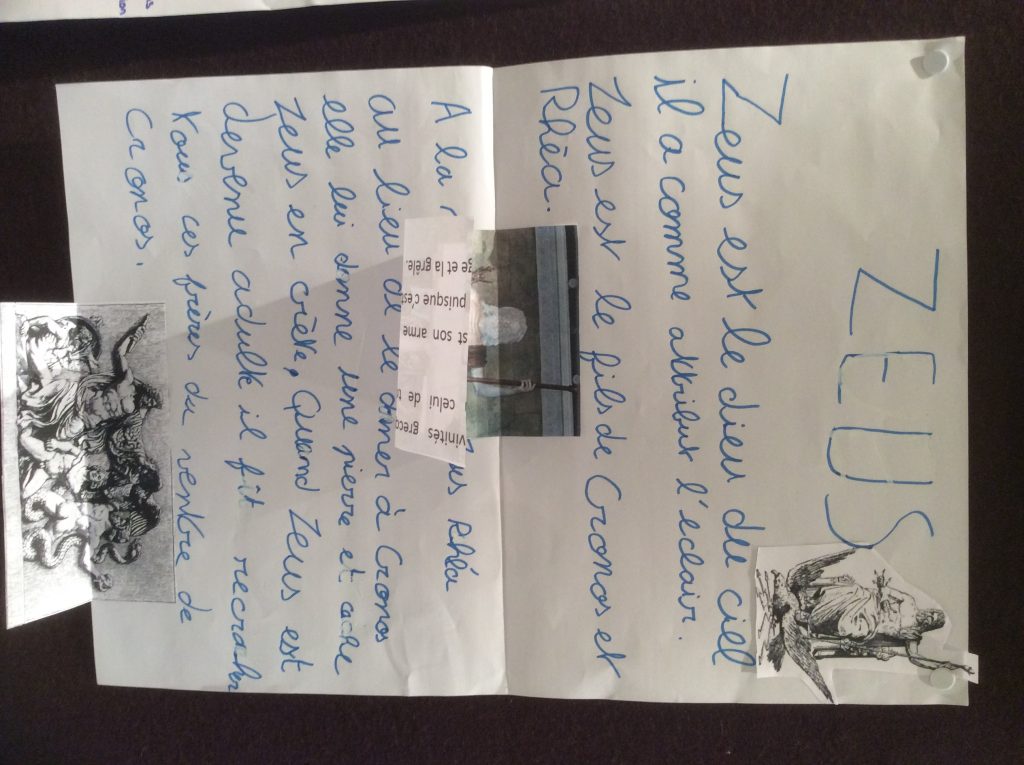 ZEUS
Zeus est le dieu du ciel
il a comme attribut l'eclair.
Zeus est le fils de Cronos et
Rhèa.
A la
Rhéa
au lieu de le donner à Cronos
elle lui donne une pierre et cache
Zeus en crète, Quand Zeus est
devenu adulte il fit recracher
tous ces frères du ventre de
Cronos.
vinités gréco
celui de
st son arme
puisque c'est
ge et la grêle.